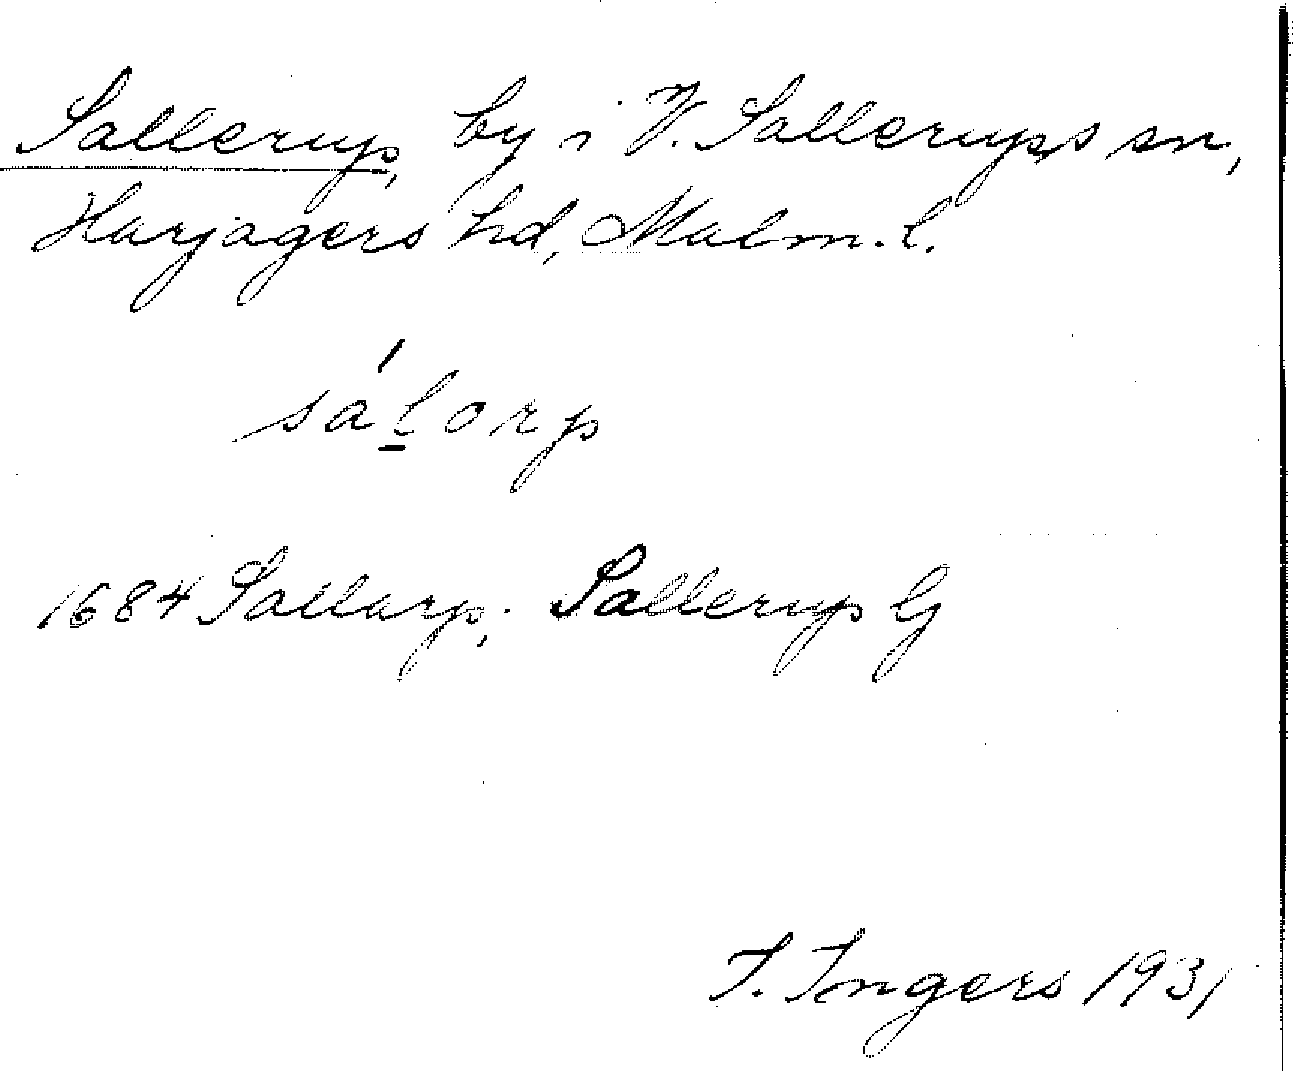 Sallerup, by i V. Sallerups sn,
Harjagers hd, Malm. l.
sál̲orp
1684 Sallarp; Sallerup G
I. Ingers 1931